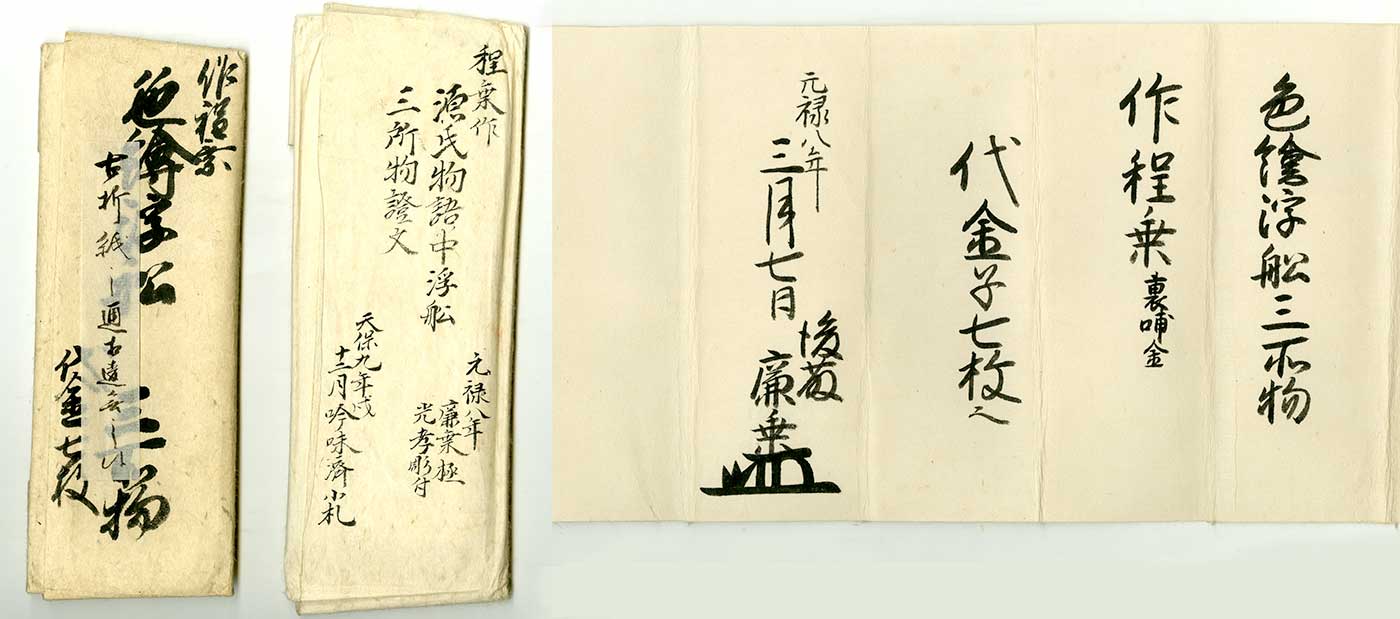 作程乗
色繪浮舩三所物
代金七枚
程乗作
源氏物語中浮舩
三所物證文
元禄八年
廉乗極
光孝彫付
天保九年戌
十二月吟味濟小札
色繪浮舩三所物
作程乗裏哺金
代金子七枚
元禄八年
三月七日
後藤
廉乗